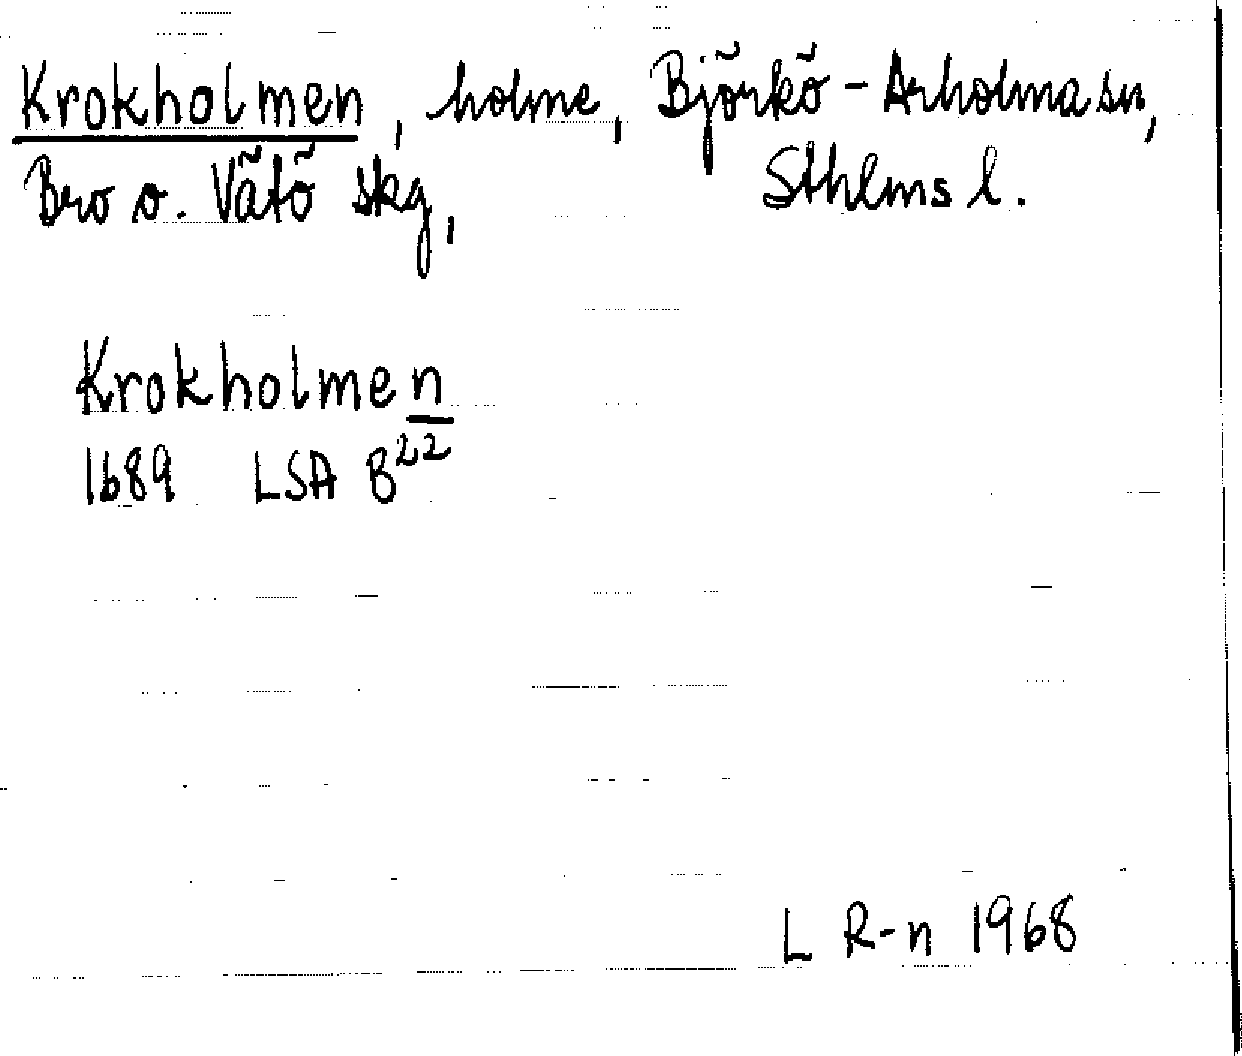 Krokholmen, holme, Björkö-Arholma sn,
Bro o. Vätö skg, Sthlms l.
Krokholmen
1689 LSA B²²
L R-n 1968